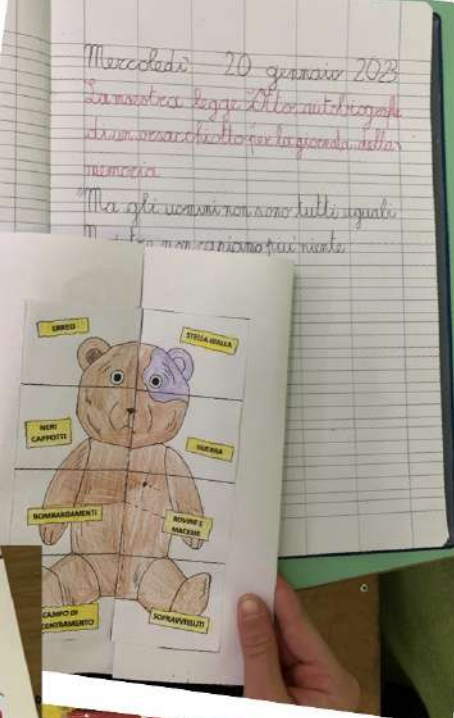 Mercoledì 20 gennaio 2023
La maestra legge Otto autobiografia
di un orsacchiotto per la giornata della
memoria
"Ma gli uomini non sono tutti uguali
non capiamo più niente
EBREO
STELLA GIALLA
NERI
CAPPOTTI
GUERRA
BOMBARDAMENTI
ROVINE E
MACERIE
CAMPO DI
CENTRAMENTO
SOPRAVVISSUTI